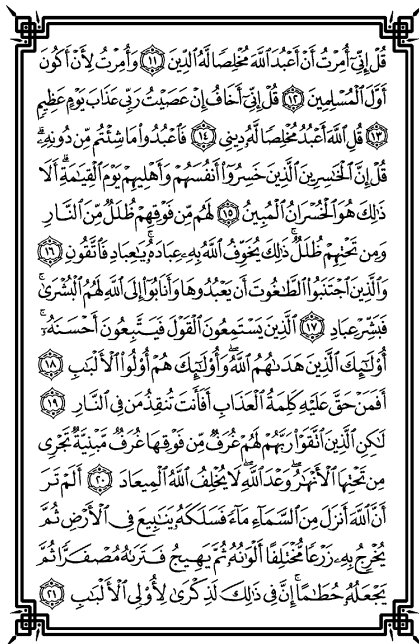 قُلْ إِنِّيٓ أُمِرْتُ أَنْ أَعْبُدَ ٱللَّهَ مُخْلِصًا لَّهُ ٱلدِّينَ ﴿١١﴾ وَأُمِرْتُ لِأَنْ أَكُونَ
أَوَّلَ ٱلْمُسْلِمِينَ ﴿١٢﴾ قُلْ إِنِّيٓ أَخَافُ إِنْ عَصَيْتُ رَبِّي عَذَابَ يَوْمٍ عَظِيمٍ
﴿١٣﴾ قُلِ ٱللَّهَ أَعْبُدُ مُخْلِصًا لَّهُۥ دِينِي ﴿١٤﴾ فَٱعْبُدُوا۟ مَا شِئْتُم مِّن دُونِهِۦۗ
قُلْ إِنَّ ٱلْخَٰسِرِينَ ٱلَّذِينَ خَسِرُوٓا۟ أَنفُسَهُمْ وَأَهْلِيهِمْ يَوْمَ ٱلْقِيَٰمَةِۗ أَلَا
ذَٰلِكَ هُوَ ٱلْخُسْرَانُ ٱلْمُبِينُ ﴿١٥﴾ لَهُم مِّن فَوْقِهِمْ ظُلَلٌ مِّنَ ٱلنَّارِ
وَمِن تَحْتِهِمْ ظُلَلٌۚ ذَٰلِكَ يُخَوِّفُ ٱللَّهُ بِهِۦ عِبَادَهُۥۚ يَٰعِبَادِ فَٱتَّقُونِ ﴿١٦﴾
وَٱلَّذِينَ ٱجْتَنَبُوا۟ ٱلطَّٰغُوتَ أَن يَعْبُدُوهَا وَأَنَابُوٓا۟ إِلَى ٱللَّهِ لَهُمُ ٱلْبُشْرَىٰۚ
فَبَشِّرْ عِبَادِ ﴿١٧﴾ ٱلَّذِينَ يَسْتَمِعُونَ ٱلْقَوْلَ فَيَتَّبِعُونَ أَحْسَنَهُۥٓۚ
أُو۟لَٰٓئِكَ ٱلَّذِينَ هَدَىٰهُمُ ٱللَّهُۖ وَأُو۟لَٰٓئِكَ هُمْ أُو۟لُوا۟ ٱلْأَلْبَٰبِ ﴿١٨﴾
أَفَمَنْ حَقَّ عَلَيْهِ كَلِمَةُ ٱلْعَذَابِ أَفَأَنتَ تُنقِذُ مَن فِي ٱلنَّارِ ﴿١٩﴾
لَٰكِنِ ٱلَّذِينَ ٱتَّقَوْا۟ رَبَّهُمْ لَهُمْ غُرَفٌ مِّن فَوْقِهَا غُرَفٌ مَّبْنِيَّةٌ تَجْرِي
مِن تَحْتِهَا ٱلْأَنْهَٰرُۖ وَعْدَ ٱللَّهِۖ لَا يُخْلِفُ ٱللَّهُ ٱلْمِيعَادَ ﴿٢٠﴾ أَلَمْ تَرَ
أَنَّ ٱللَّهَ أَنزَلَ مِنَ ٱلسَّمَآءِ مَآءً فَسَلَكَهُۥ يَنَٰبِيعَ فِي ٱلْأَرْضِ ثُمَّ
يُخْرِجُ بِهِۦ زَرْعًا مُّخْتَلِفًا أَلْوَٰنُهُۥ ثُمَّ يَهِيجُ فَتَرَىٰهُ مُصْفَرًّا ثُمَّ
يَجْعَلُهُۥ حُطَٰمًاۚ إِنَّ فِي ذَٰلِكَ لَذِكْرَىٰ لِأُو۟لِي ٱلْأَلْبَٰبِ ﴿٢١﴾